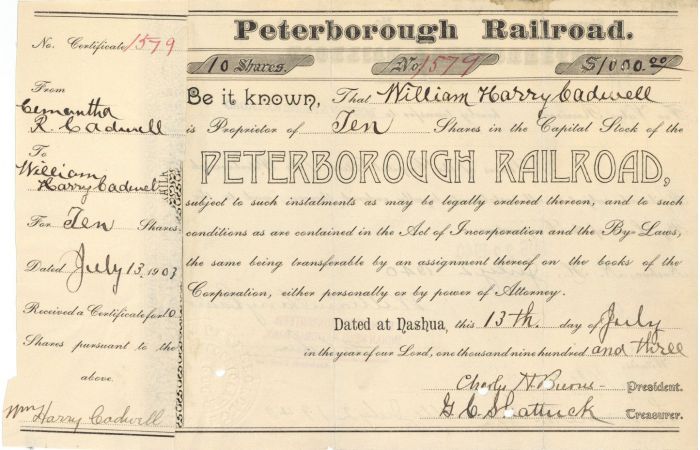 No. Certificate 1579
From
R. Cadwell
To
William
Harry Cadwell
For Ten Shares.
Dated July 13, 1903
Received a Certificate for 10
Shares pursuant to the
above.
Wm Harry Cadwell
Peterborough Railroad.
10 Shares. No. 1579 $1000.00
Be it known, That William Harry Cadwell
is Proprietor of Ten Shares in the Capital Stock of the
PETERBOROUGH RAILROAD,
subject to such instalments as may be legally ordered thereon, and to such
conditions as are contained in the Act of Incorporation and the By-Laws,
the same being transferable by an assignment thereof on the books of the
Corporation, either personally or by power of Attorney.
Dated at Nashua, this 13th. day of July
in the year of our Lord, one thousand nine hundred and three
Charles H Burns President.
G. C. Shattuck Treasurer.